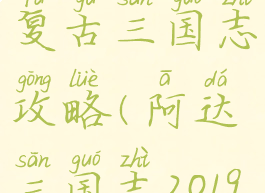 fù gǔ sān guó zhì
复古三国志
gōng lüè ā dá
攻略(阿达
sān guó zhì
三国志2019